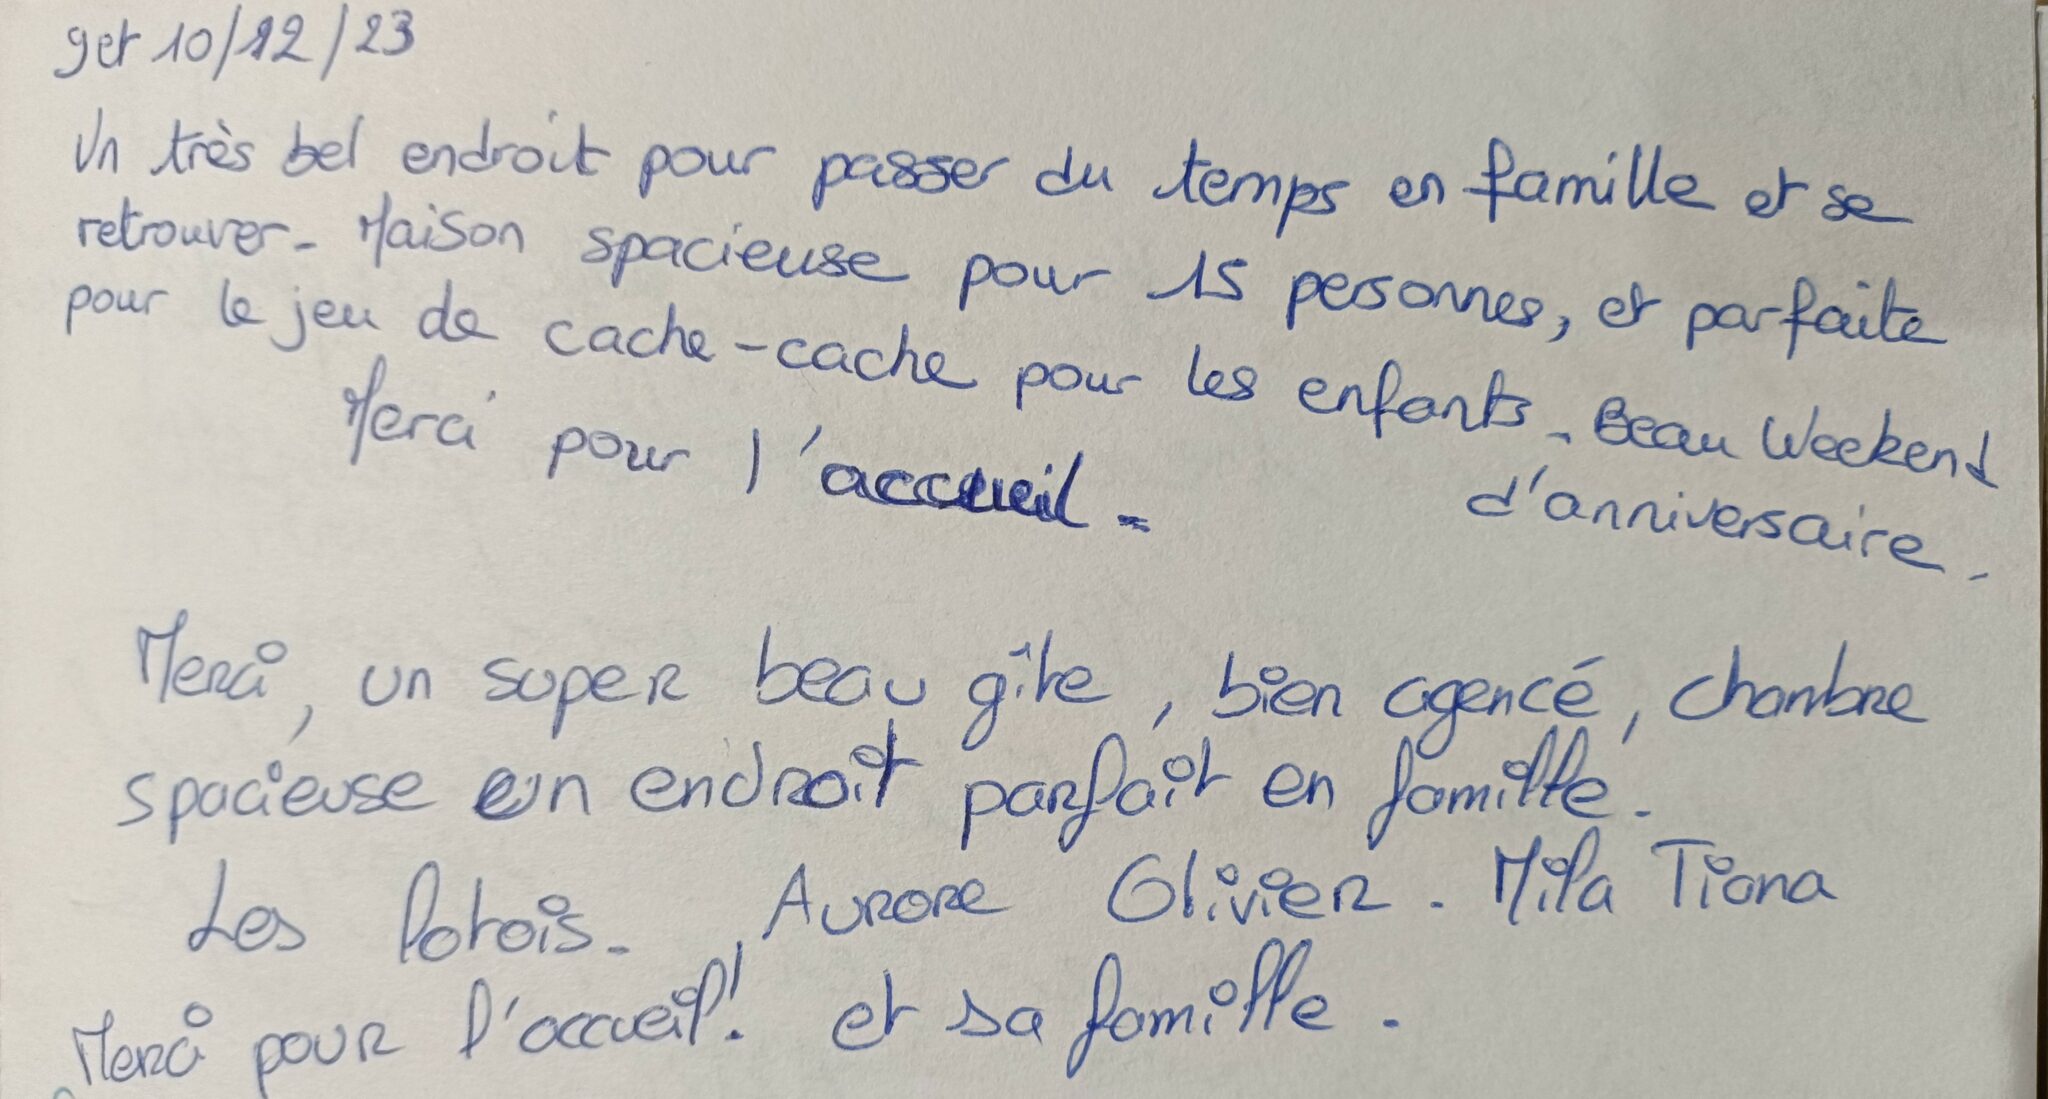 9 et 10/12/23
Un très bel endroit pour passer du temps en famille et se
retrouver - Maison spacieuse pour 15 personnes, et parfaite
pour le jeu de cache-cache pour les enfants - Beau Weekend
d'anniversaire.
Merci pour l'accueil -
Merci, un super beau gîte, bien agencé, chambre
spacieuse un endroit parfait en famille.
Les Potois - Aurore Olivier. Mila Tiana
et sa famille.
Merci pour l'accueil!